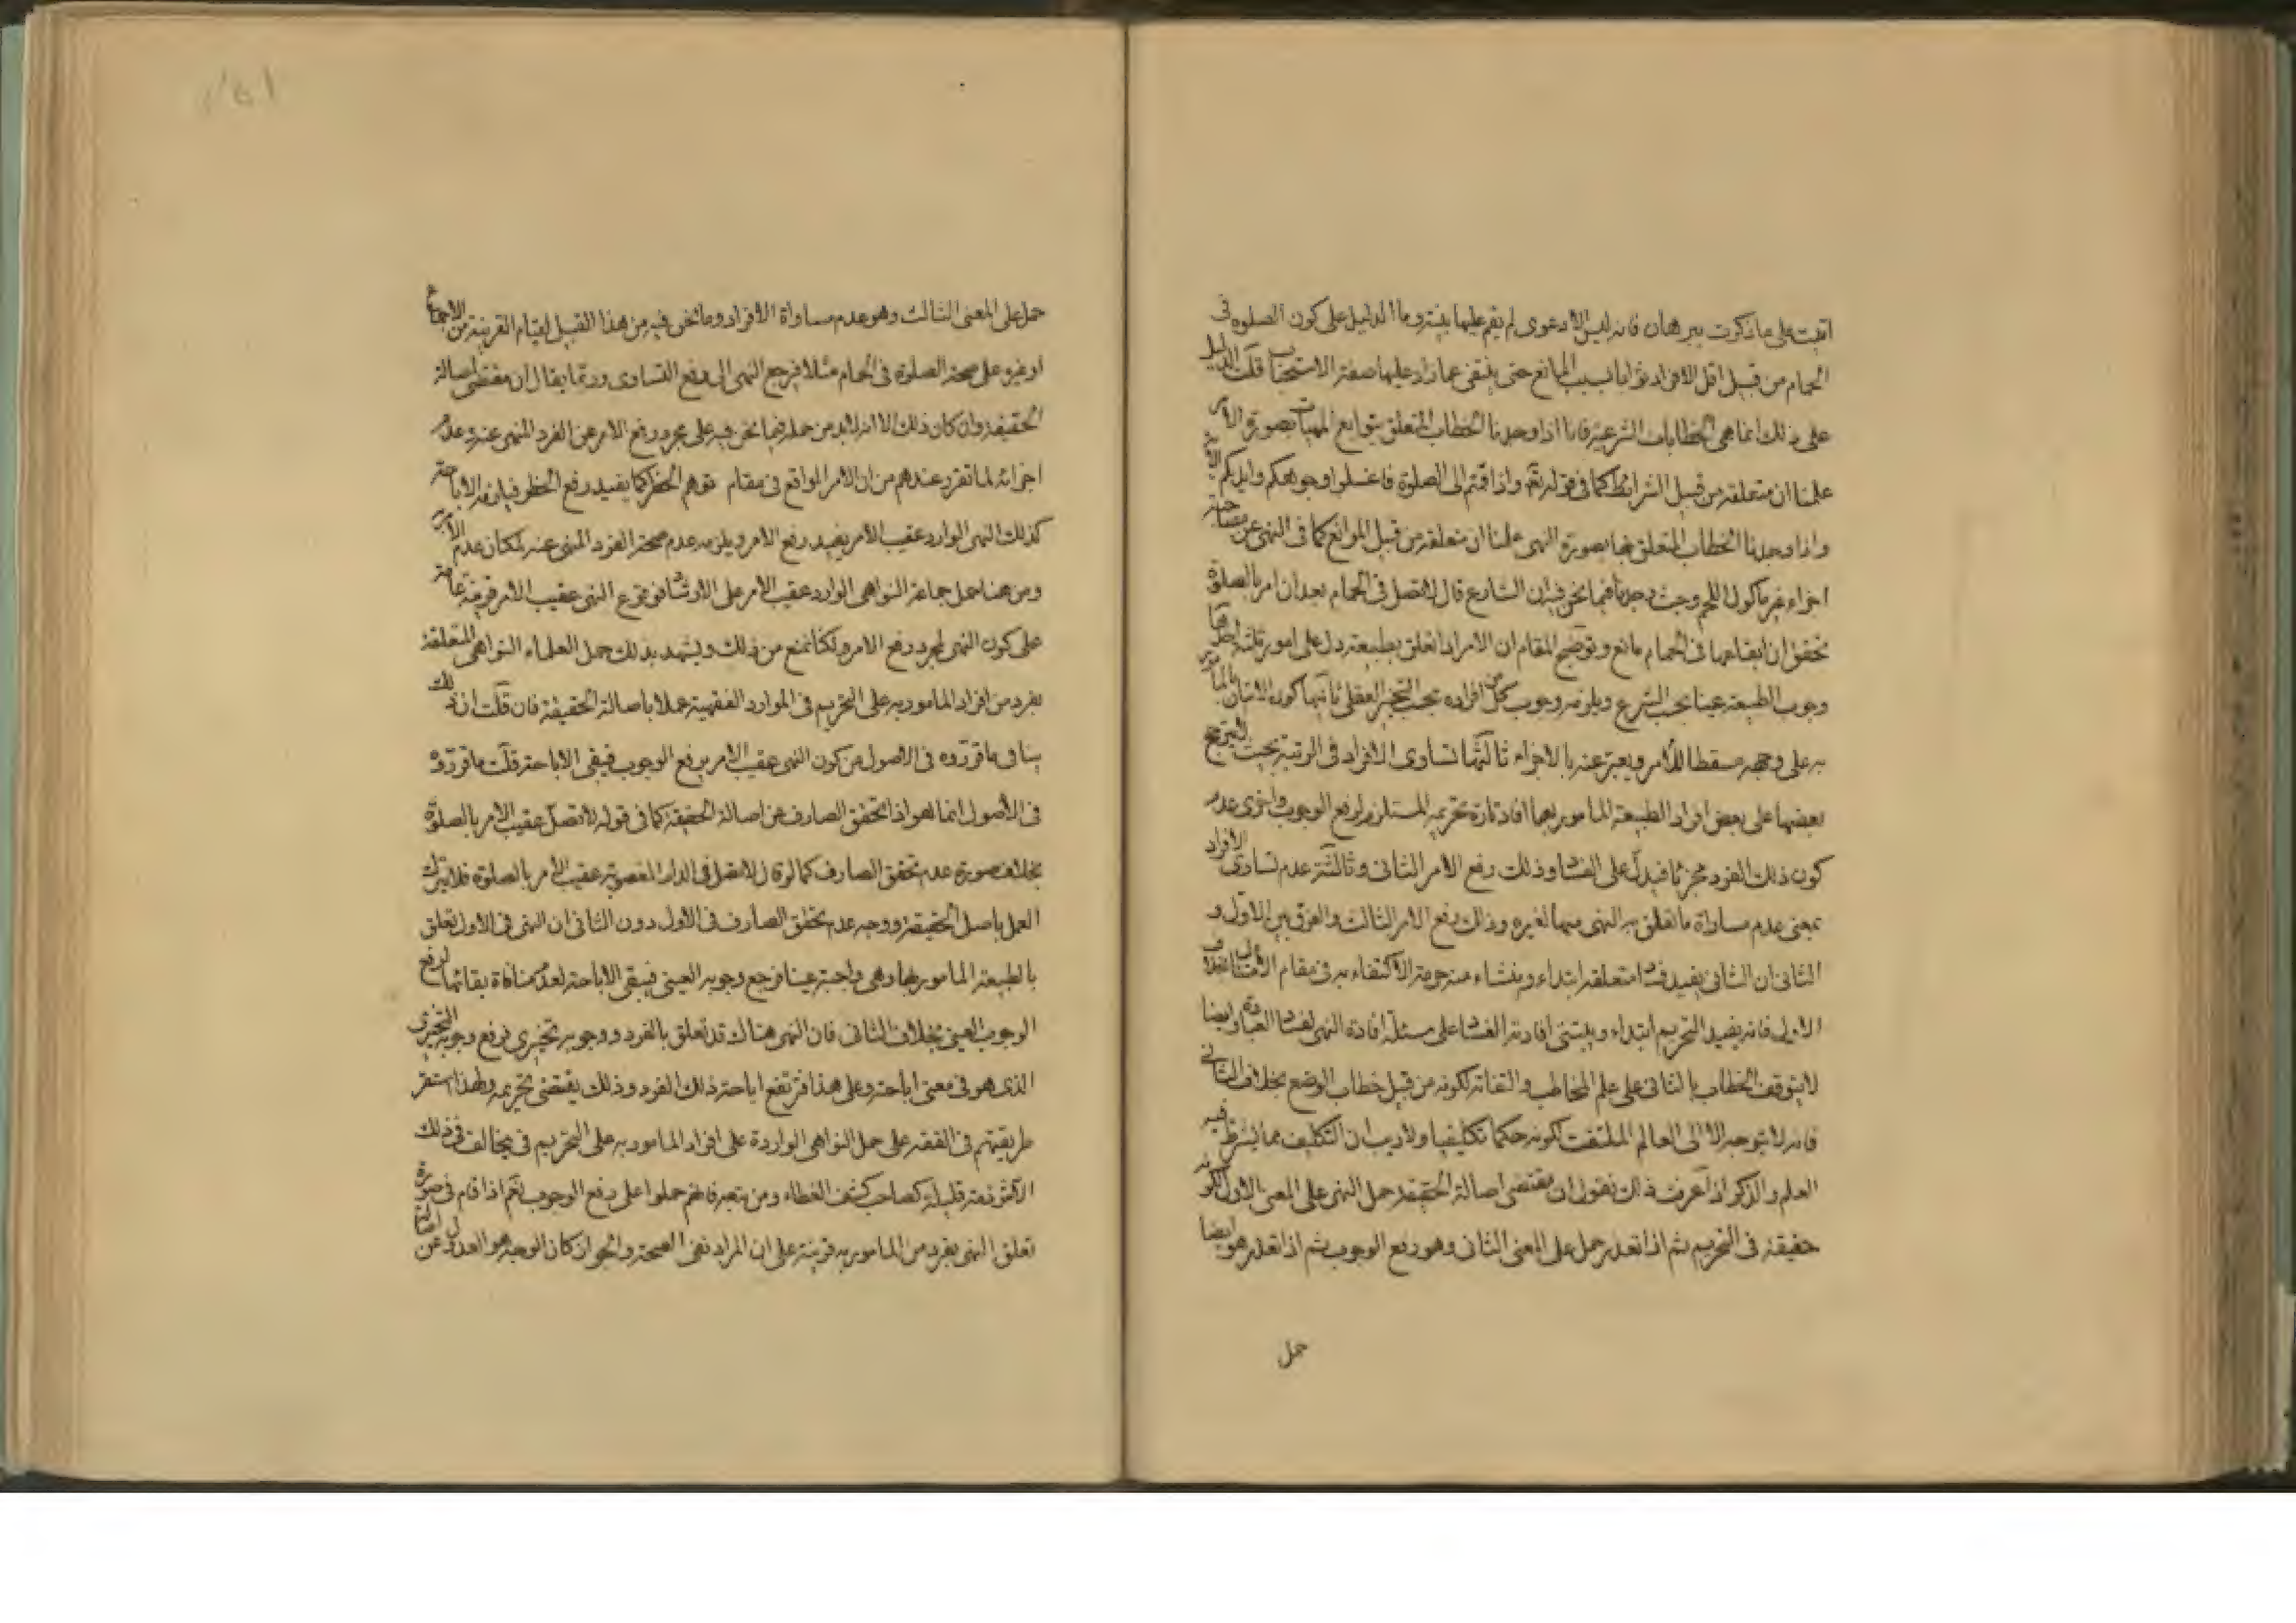 اتيت على ما ذكرت ببرهان فانه ليس الا دعوى لم يقم عليها بينة وما الدليل على كون الصلوة فى
الحمام من قبيل اقل الافراد ثوابا لسبب المانع حتى ينتفى عما زاد عليها صفة الاستحباب قلت الدليل
على ذلك انما هى الخطابات الشرعية فانا اذا وجدنا الخطاب المتعلق بتوابع المهيات بصورة الامر
علمنا ان متعلقه من قبيل الشرائط كما فى قوله تعالى واذا قمتم الى الصلوة فاغسلوا وجوهكم وايديكم
واذا وجدنا الخطاب المتعلق بها بصورة النهى علمنا ان متعلقه من قبيل الموانع كما فى النهى عن
اجزاء غير ماكول اللحم وحيث وجدنا فيما نحن فيه ان الشارع قال لا تصل فى الحمام بعد ان امر بالصلوة
تحقق ان ايقاعها فى الحمام مانع وتوضيح المقام ان الامر اذا تعلق بطبيعة دل على امور ثلثة احدها
وجوب الطبيعة عينا بحسب الشرع ويلزمه وجوب كل من افراده بحسب التخيير العقلى ثانيها كون الاتيان
به على وجهه مسقطا للامر ويعبر عنه بالاجزاء ثالثها تساوى الافراد فى الرتبة بحيث
بعضها على بعض افراد الطبيعة المامور بها افاد تارة تحريمه المستلزم لرفع الوجوب واخرى عدم
كون ذلك الفرد مجزئا فيدل على الفساد وذلك رفع الامر الثانى وثالثة عدم تساوى الافراد
بمعنى عدم مساواة ما تعلق به النهى منها لغيره وذلك رفع الامر الثالث والفرق بين الاول و
الثانى ان الثانى يفيد فساد متعلقه ابتداء ومنشاء منه حرمة الاكتفاء به فى مقام الامتثال بخلاف
الاول فانه يفيد التحريم ابتداء ويبتنى افادته الفساد على مسئلة افادة النهى لفساد العبادة وايضا
لا يتوقف الخطاب بالثانى على علم المخاطب والتفاته لكونه من قبيل خطاب الوضع بخلاف
فانه لا يتوجه الا الى العالم الملتفت لكونه حكما تكليفيا ولا ريب ان التكليف مما يشترط فيه
العلم والذكر اذا عرفت ذلك نقول ان مقتضى اصالة الحقيقة حمل النهى على المعنى الاول لكونه
حقيقة فى التحريم ثم اذا تعذر حمل على المعنى الثانى وهو رفع الوجوب ثم اذا تعذر هو ايضا
حمل
حمل على المعنى الثالث وهو عدم مساواة الافراد وما نحن فيه من هذا القبيل لقيام القرينة من الاجماع
او غيره على صحة الصلوة فى الحمام مثلا فرجع النهى الى رفع التساوى وربما يقال ان مقتضى اصالة
الحقيقة وان كان ذلك الا انه لابد من حمله فيما نحن فيه على مجرد رفع الامر عن الفرد المنهى عنه وعدم
اجزائه لما تقرر عندهم من ان الامر الواقع فى مقام توهم الحظر كما يفيد رفع الحظر فيلزمه الاباحة
كذلك النهى الوارد عقيب الامر يفيد رفع الامر ويلزمه عدم صحة الفرد المنهى عنه لمكان عدم الامر
ومن هنا حمل جماعة النواهى الوارد عقيب الامر على الارشاد فوقوع النهى عقيب الامر قرينة عامة
على كون النهى لمجرد رفع الامر ولكنا نمنع من ذلك ويشهد بذلك حمل العلماء النواهى المتعلقة
بفرد من افراد المامور به على التحريم فى الموارد الفقهية عملا باصالة الحقيقة فان قلت ان ذلك
ينافى ما قرروه فى الاصول من كون النهى عقيب الامر يرفع الوجوب فيبقى الاباحة قلت ما قرروه
فى الاصول انما هو اذا تحقق الصارف عن اصالة الحقيقة كما فى قوله لا تصل عقيب الامر بالصلوة
بخلاف صورة عدم تحقق الصارف كما لو قال لا تصل فى الدار المغصوبة عقيب الامر بالصلوة فلا يترك
العمل باصل الحقيقة ووجه عدم تحقق الصارف فى الاول دون الثانى ان النهى فى الاول تعلق
بالطبيعة المامور بها وهى واجبة عينا فرجع وجوبه العينى فيبقى الاباحة لعدم منافاة بقائها لرفع
الوجوب العينى بخلاف الثانى فان النهى هناك قد تعلق بالفرد ووجوبه تخييرى فرفع وجوبه التخييرى
الذى هو فى معنى اباحته وعلى هذا فترتفع اباحة ذلك الفرد وذلك يقتضى تحريمه ولهذا استقر
طريقتهم فى الفقه على حمل النواهى الواردة على افراد المامور به على التحريم فى يخالف فى ذلك
الا شرذمة قليلة كصاحب كشف الغطاء ومن يتبعه فانهم حملوا على رفع الوجوب نعم اذا قام فى صورة
تعلق النهى بفرد من المامور به قرينة على ان المراد نفى الصحة والجواز كان الوجه هو العدول عن اصالة